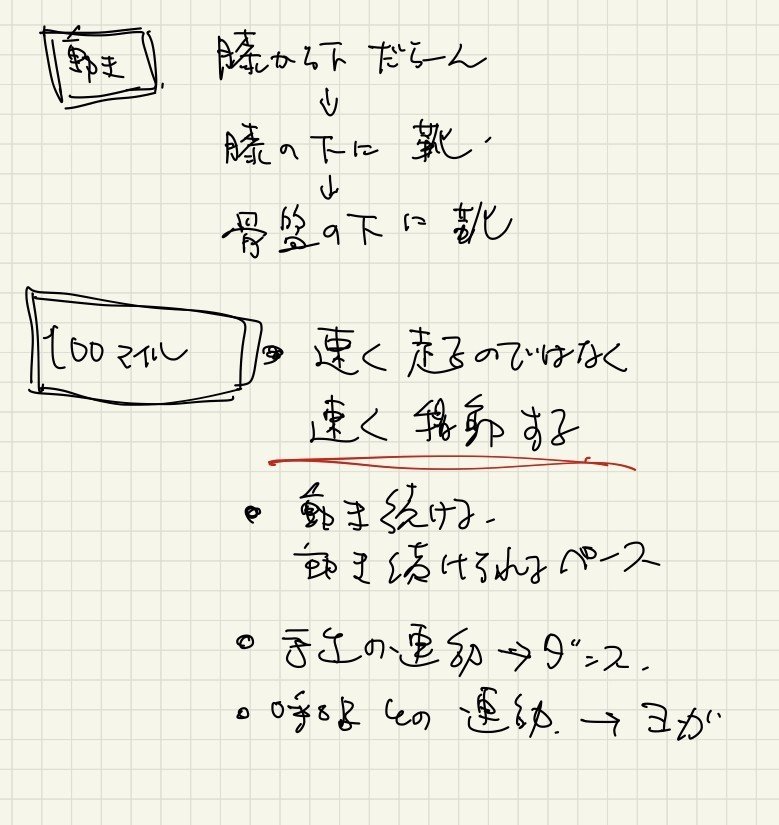 動き
膝から下 だらーん
↓
膝の下に 靴
↓
骨盤の下に 靴
100マイル
・速く走るのではなく
速く移動する
・動き続ける
動き続けられるペース
・音との連動→ダンス.
・呼吸との連動.→ヨガ